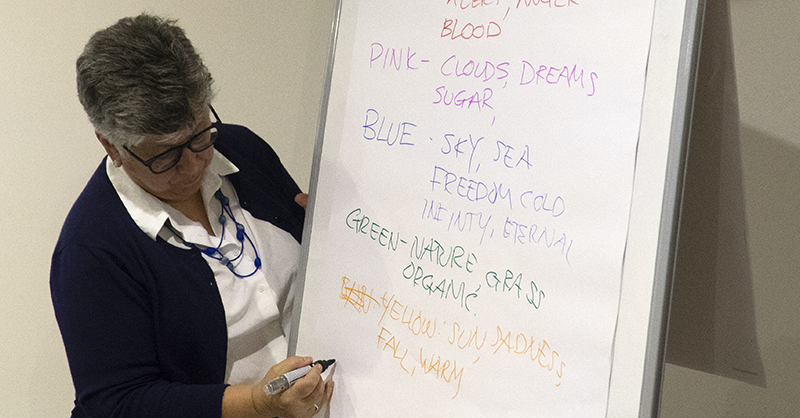 ALERT, ANGER
BLOOD
PINK- CLOUDS, DREAMS
SUGAR,
BLUE - SKY, SEA
FREEDOM COLD
INFINTY, ETERNAL
GREEN-NATURE, GRASS
ORGANIC.
YELLOW: SUN, SADNESS,
FALL, WARM